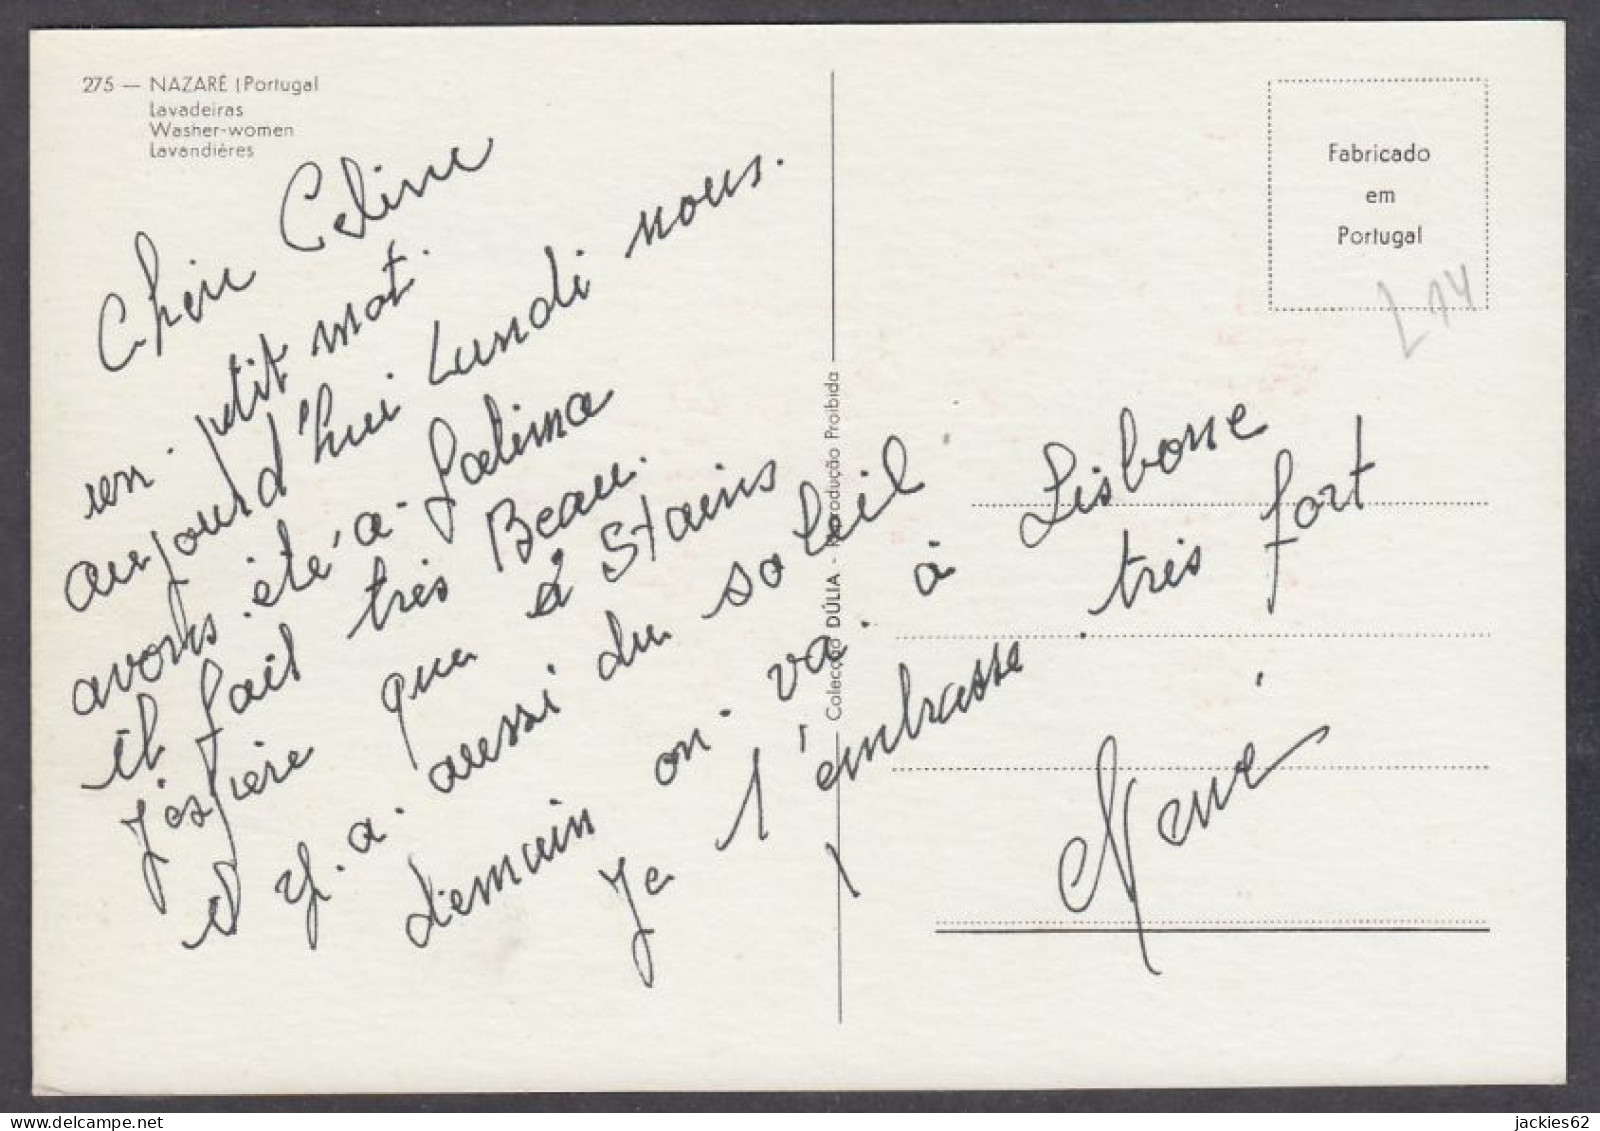 275 — NAZARÉ (Portugal
Lavadeiras
Washer-women
Lavandières
Chère Celine
un petit mot.
aujourd'hui Lundi nous.
avons été a fatima
il fait très Beau.
J'espère que à Stains
il y a aussi du soleil
demain on va à Lisbonne
Je t'embrasse très fort
Colecção DÚLIA - Reprodução Proibida
Fabricado
em
Portugal
L14
jackies62